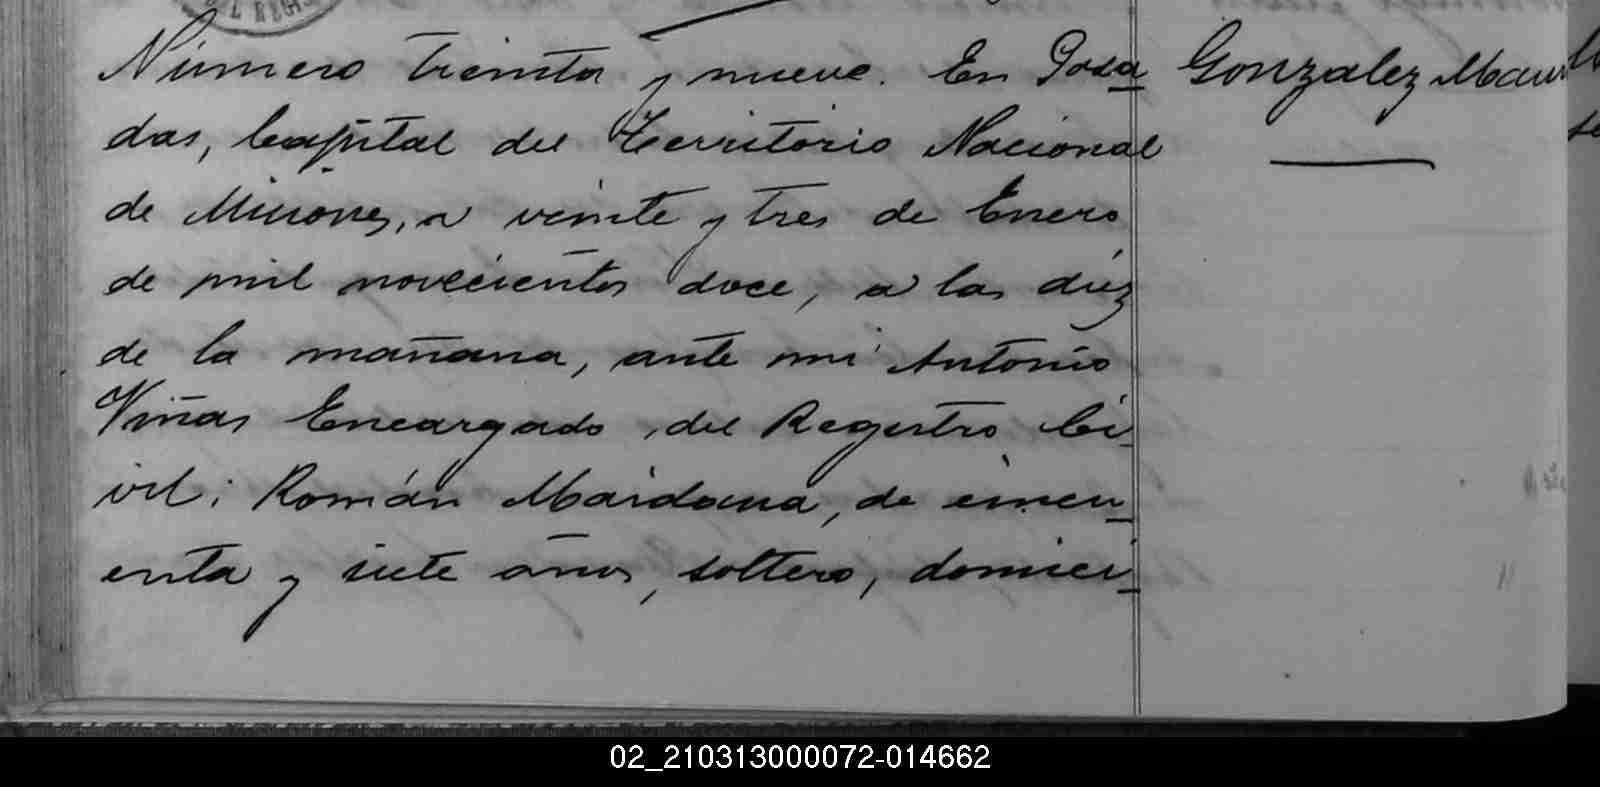 Número treinta y nueve. En Posa
das, Capital del Territorio Nacional
de Misiones, a veinte y tres de Enero
de mil novecientos doce, a las diez
de la mañana, ante mi Antonio
Viñas Encargado del Registro Ci-
vil; Román Maidana, de cincu-
enta y siete años, soltero, domici-
Gonzalez
02_210313000072-014662